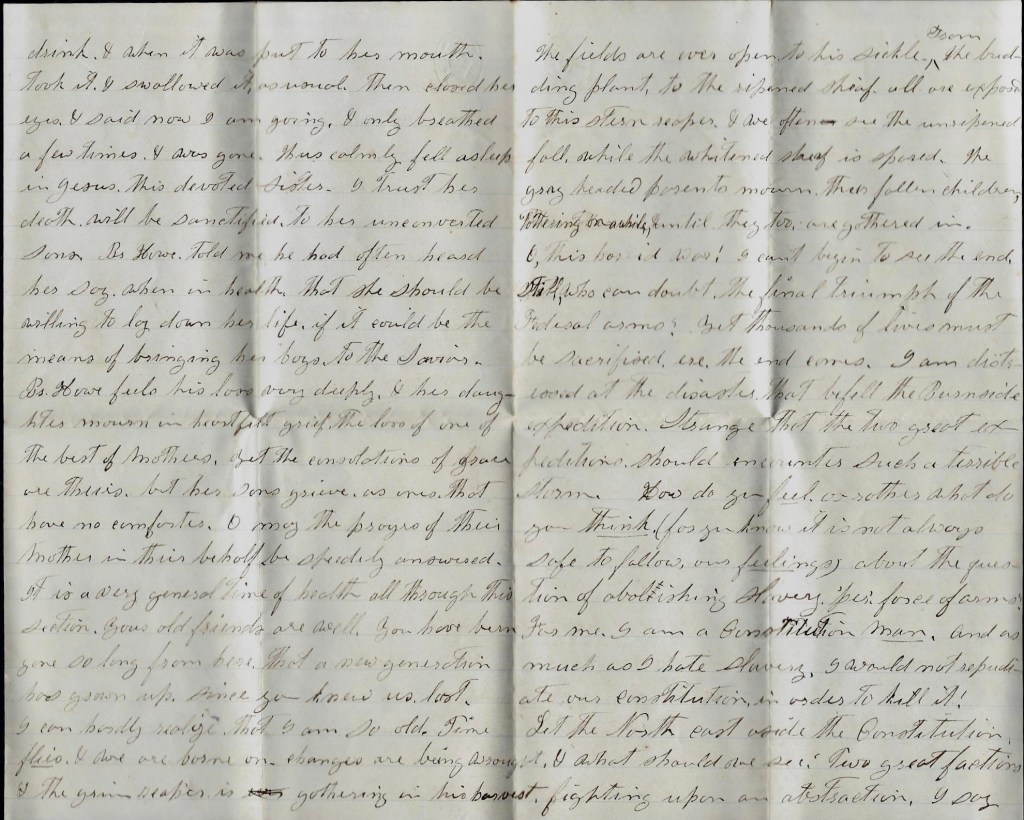 drink. & when it was put to her mouth.
took it. & swallowed it, as usual. Then closed her
eyes. & said now I am going. & only breathed
a few times. & was gone. Thus calmly fell asleep
in Jesus. this devoted sister. I trust her
death. will be sanctified. to her unconverted
sons. Br. Howe. told me he had often heard
her say. when in health. that she should be
willing to lay down her life. if it could be the
means of bringing her boys. to the Savior.
Br. Howe feels his loss very deeply. & her daug-
hters mourn in heartfelt grief. the loss of one of
the best of Mothers. yet the consolations of grace
are theirs. but her sons grieve. as ones. that
have no comforter. O may the prayers of their
Mother in their behalf be speedily answered.
It is a very general time of health all through this
section. Your old friends are well. You have been
gone so long from here. that a new generation
has grown up. since you knew us. last.
I can hardly realize. that I am so old. Time
flies. & we are borne on. changes are being wrought,
& the grim reaper is gathering in his harvest.
The fields are ever open to his sickle. From the bud-
ding plant, to the ripened sheaf. all are exposed
to this stern reaper. & we often see the unripened
fall. while the whitened sheaf is spared. The
gray headed parents mourn. their fallen children,
tottering on awhile, until they too, are gathered in.
O, this horrid war! I can't begin to see the end.
Still, who can doubt, the final triumph of the
Federal arms? Yet thousands of lives must
be sacrificed, ere, the end comes. I am distr-
essed at the disaster. that befell the Burnside
expedition. Strange that the two great ex-
peditions. should encounter such a terrible
storm. How do you feel. or rather what do
you think, (for you know it is not always
safe to follow, our feelings) about the ques-
tion of abolishing Slavery. per. force of arms?
For me. I am a Constitution Man. and as
much as I hate Slavery, I would not repudi-
ate our constitution, in order to kill it!
Let the North cast aside the Constitution,
& what should we see? Two great factions
fighting upon an abstraction, I say